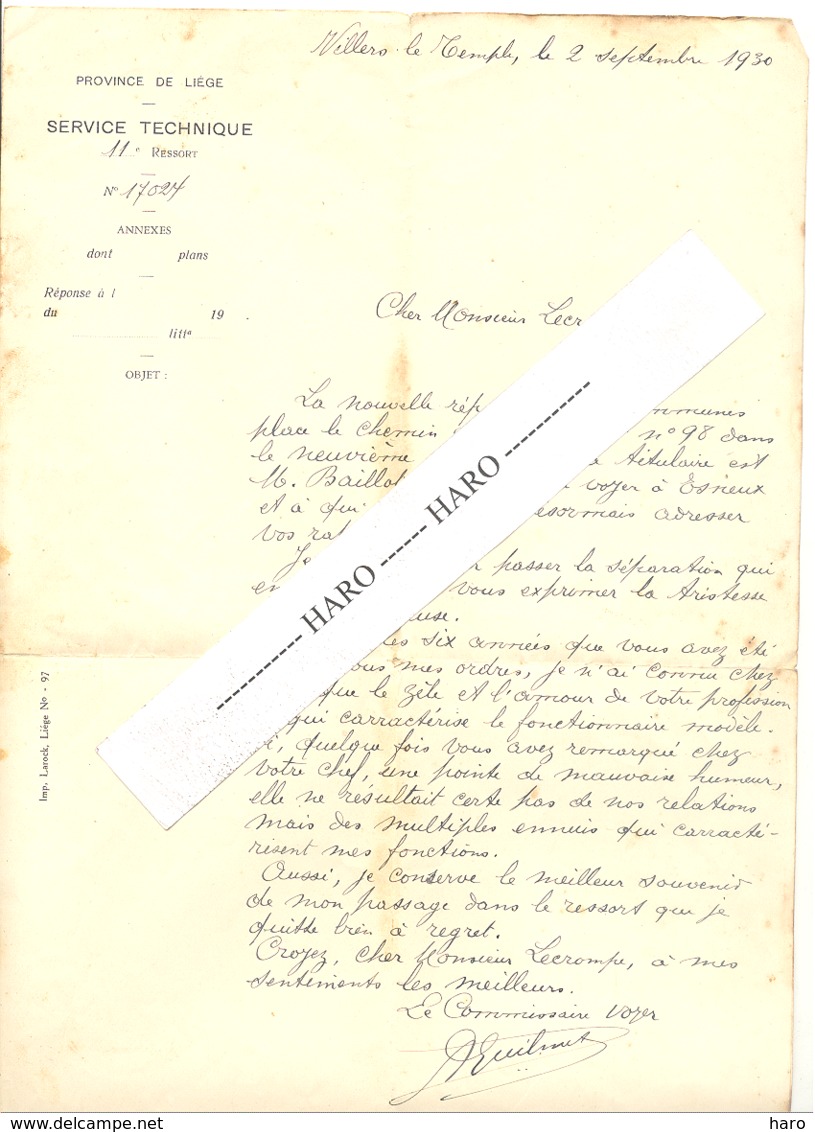 Villers-le-Temple, le 2 septembre 1930
PROVINCE DE LIÉGE
SERVICE TECHNIQUE
11e RESSORT
No 17024
ANNEXES
dont plans
Réponse à l
du 19 .
litta
OBJET :
Cher Monsieur Lecr
La nouvelle rép mmunes
place le chemin n° 98 dans
le neuvième titulaire est
M. Baillot voyer à Esneux
et à qui ésormais adresser
vos rap
Je passer la séparation qui
en vous exprimer la tristesse
use.
les six années que vous avez été
ous mes ordres, je n'ai connu chez
que le zèle et l'amour de votre profession
qui carractérise le fonctionnaire modèle.
i, quelque fois vous avez remarqué chez
votre chef, une pointe de mauvaise humeur,
elle ne résultait certe pas de nos relations
mais des multiples ennuis qui carracté-
risent mes fonctions.
Aussi, je conserve le meilleur souvenir
de mon passage dans le ressort que je
quitte bien à regret.
Croyez, cher Monsieur Lecrompe, à mes
sentiments les meilleurs.
Le Commissaire voyer
Imp. Larock, Liége No - 97
------- HARO ------ HARO -------
www.delcampe.net
haro